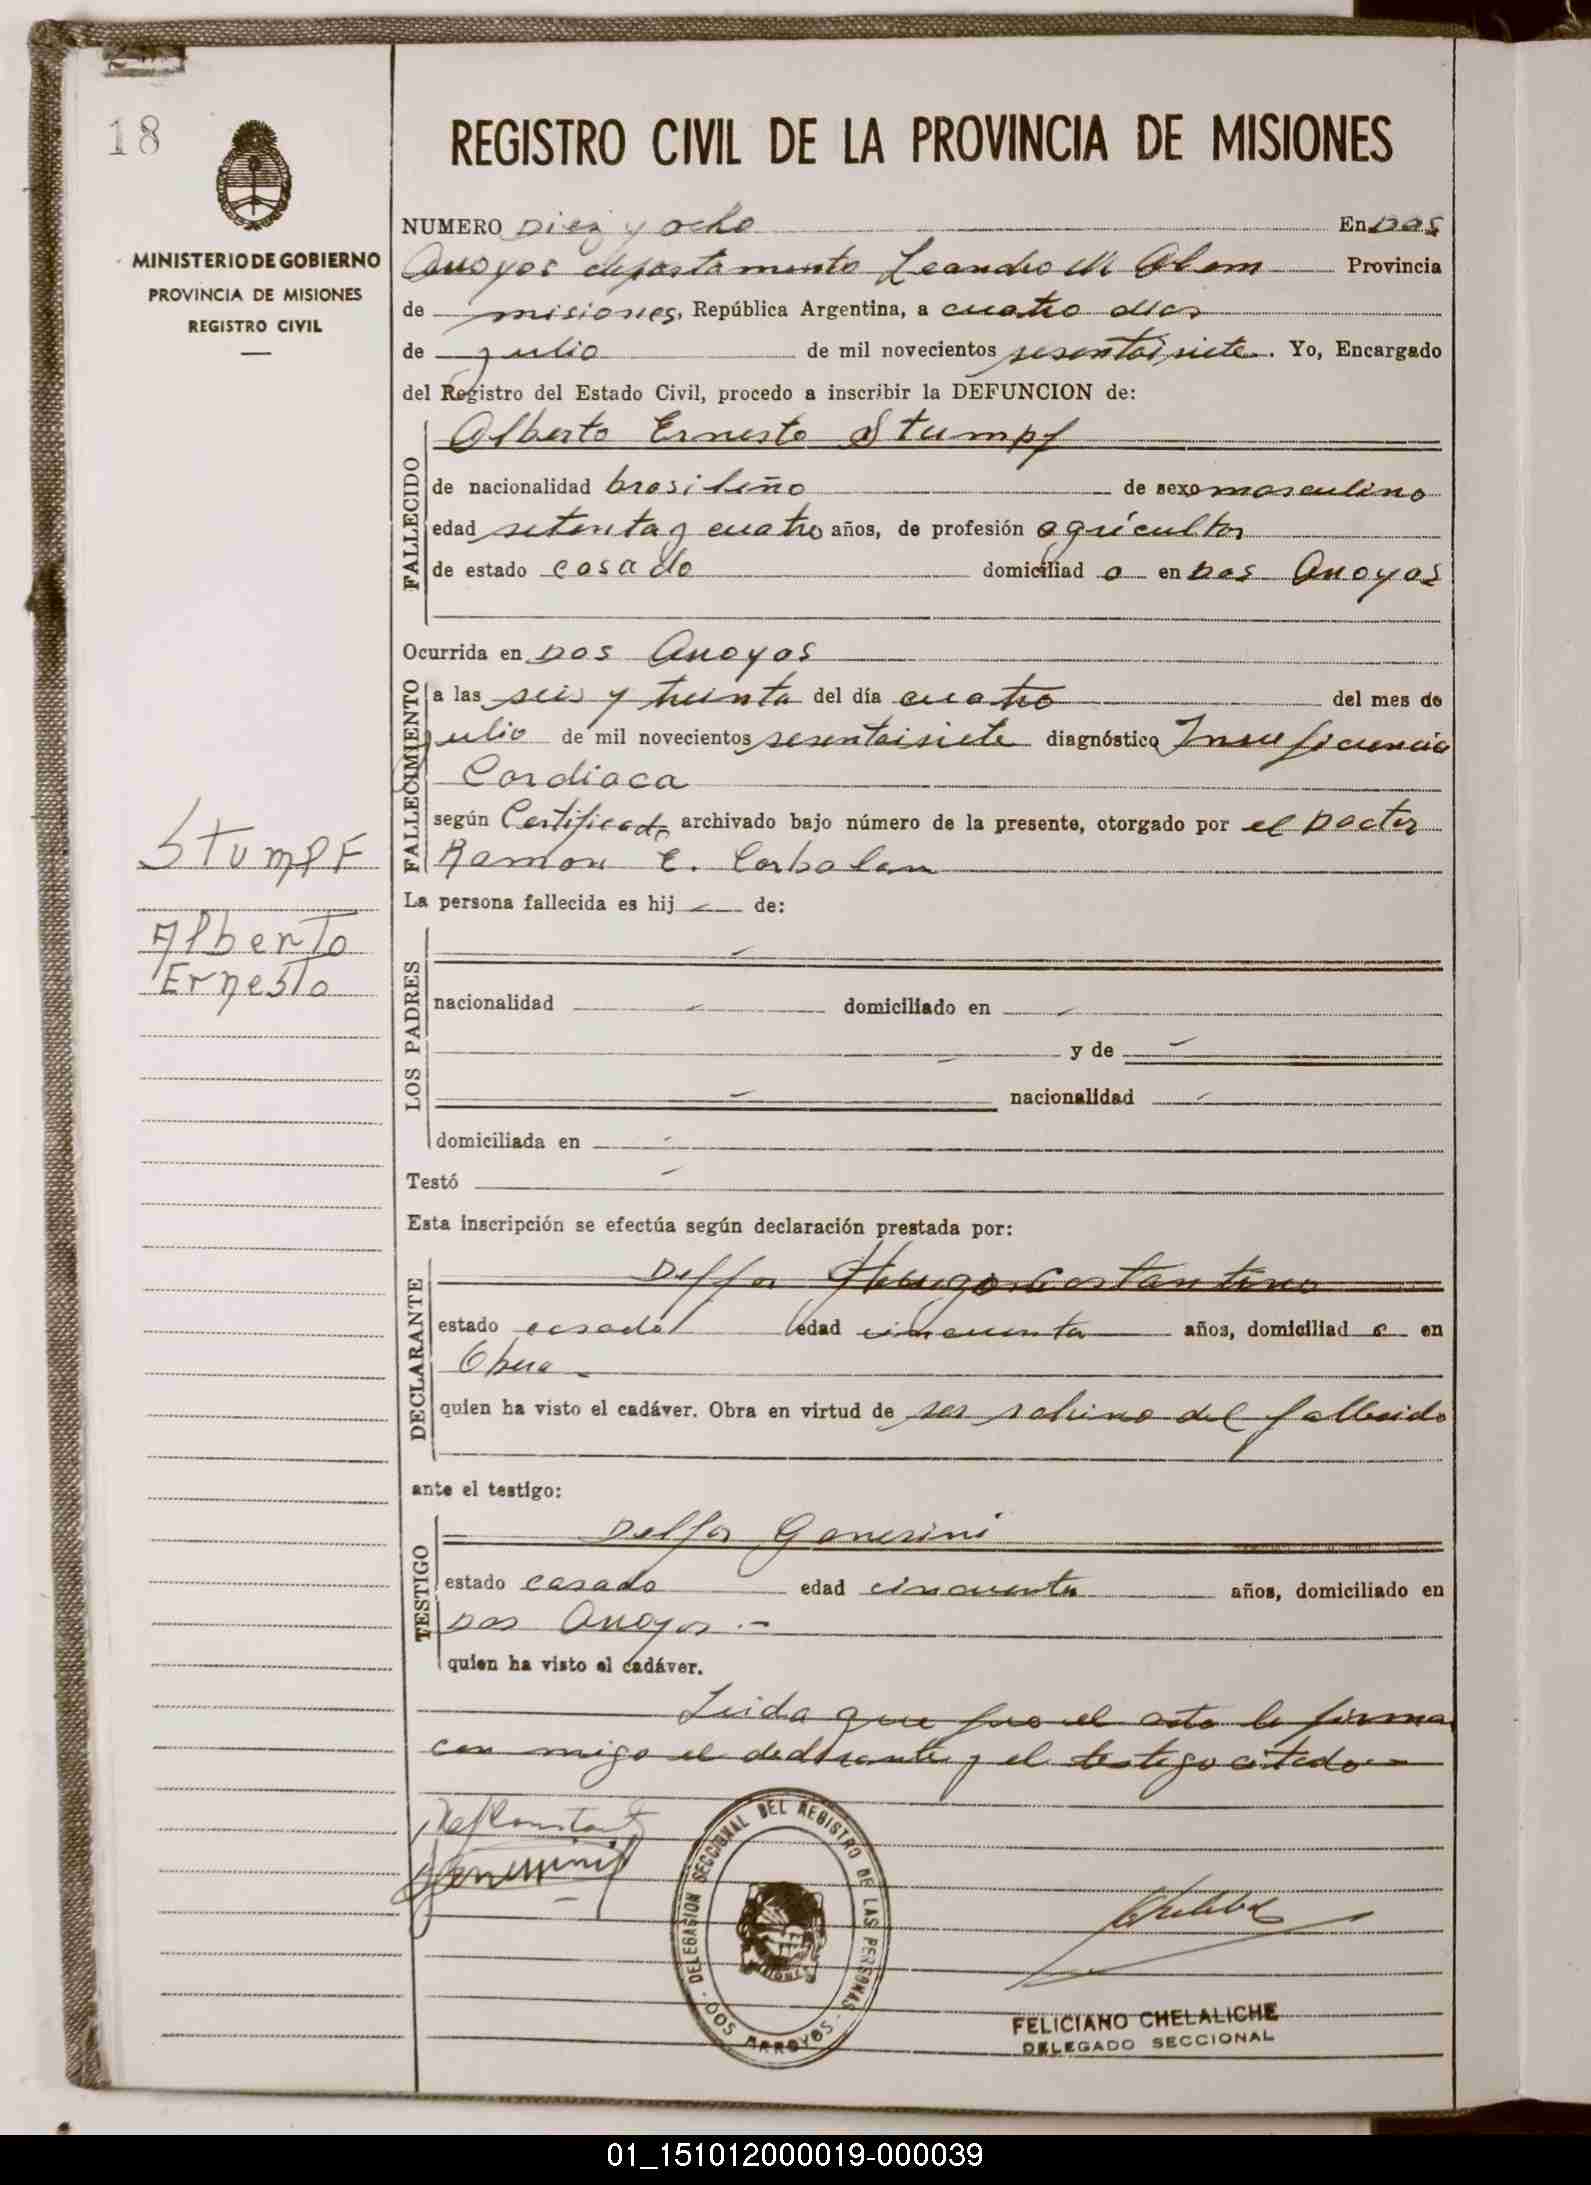 18
REGISTRO CIVIL DE LA PROVINCIA DE MISIONES
MINISTERIO DE GOBIERNO
PROVINCIA DE MISIONES
REGISTRO CIVIL
NUMERO Diez y ocho En Dos
Arroyos departamento Leandro N Alem Provincia
de misiones, República Argentina, a cuatro dias
de julio de mil novecientos sesentaisiete. Yo, Encargado
del Registro del Estado Civil, procedo a inscribir la DEFUNCION de:
FALLECIDO
Alberto Ernesto Stumpf
de nacionalidad brasileño de sexo masculino
edad setenta y cuatro años, de profesión agricultor
de estado casado domiciliad o en Dos Arroyos
Ocurrida en Dos Arroyos
FALLECIMIENTO
a las seis y treinta del día cuatro del mes de
julio de mil novecientos sesentaisiete diagnóstico Insuficiencia
Cardiaca
según Certificado archivado bajo número de la presente, otorgado por el Doctor
Ramon E. Corbalan
Stumpf
Alberto
Ernesto
La persona fallecida es hij — de:
LOS PADRES
nacionalidad — domiciliado en —
— y de —
— nacionalidad —
domiciliada en —
Testó —
Esta inscripción se efectúa según declaración prestada por:
DECLARANTE
Delfor Costantino
estado casado edad cincuenta años, domiciliad o en
Obera
quien ha visto el cadáver. Obra en virtud de ser sobrino del fallecido
ante el testigo:
TESTIGO
Delfor Genesini
estado casado edad cincuenta años, domiciliado en
Dos Arroyos.-
quien ha visto el cadáver.
Leida que fue el acta la firma
con migo el declarante y el testigo citado
DELEGACION SECCIONAL DEL REGISTRO DE LAS PERSONAS - DOS ARROYOS -
FELICIANO CHELALICHE
DELEGADO SECCIONAL
01_151012000019-000039